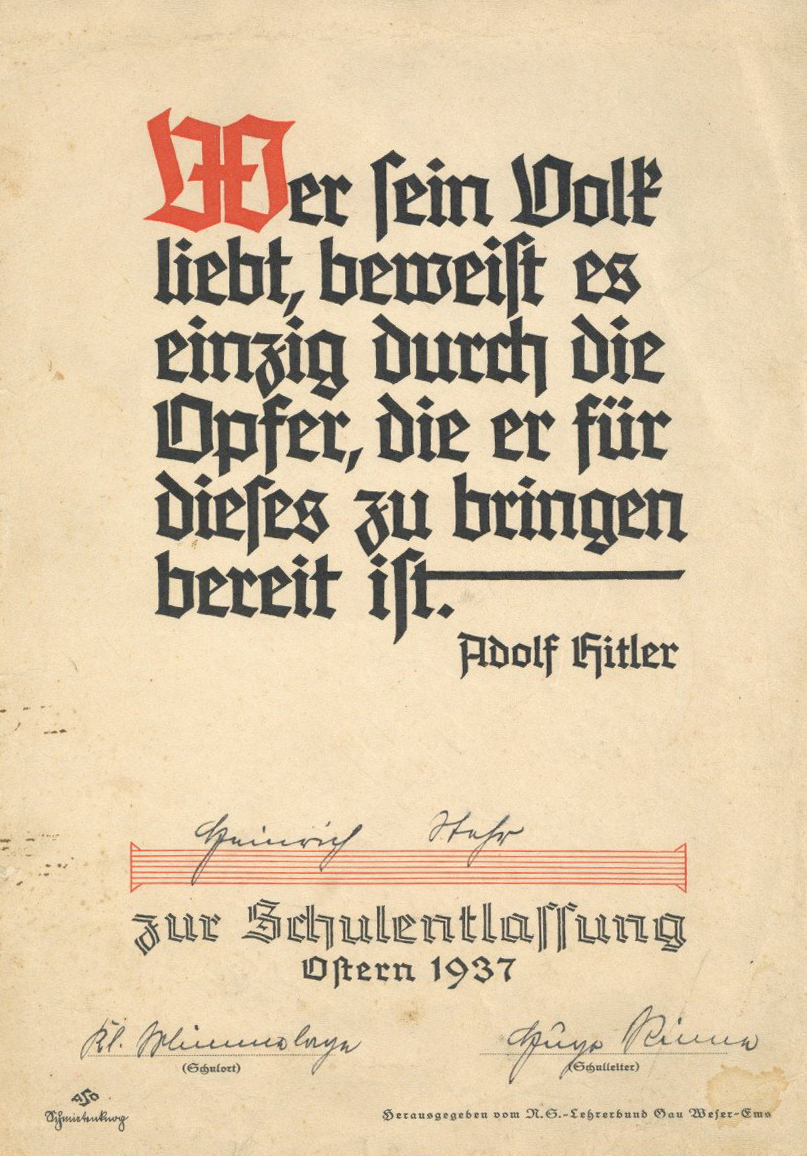 Wer sein Volk
liebt, beweist es
einzig durch die
Opfer, die er für
dieses zu bringen
bereit ist.
Adolf Hitler
Heinrich Stehr
zur Schulentlassung
Ostern 1937
Kl. Mimmelage
Hugo Rinne
(Schulort)
(Schulleiter)
Herausgegeben vom N.S.-Lehrerbund Gau Weser-Ems